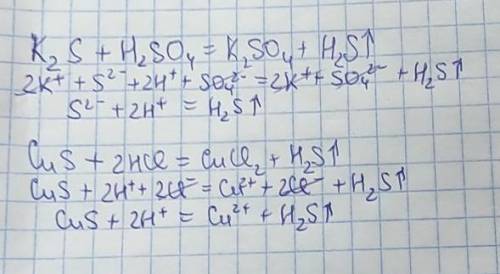 K₂S + H₂SO₄ = K₂SO₄ + H₂S↑
2K⁺ + S²⁻ + 2H⁺ + SO₄²⁻ = 2K⁺ + SO₄²⁻ + H₂S↑
S²⁻ + 2H⁺ = H₂S↑
CuS + 2HCl = CuCl₂ + H₂S↑
CuS + 2H⁺ + 2Cl⁻ = Cu²⁺ + 2Cl⁻ + H₂S↑
CuS + 2H⁺ = Cu²⁺ + H₂S↑